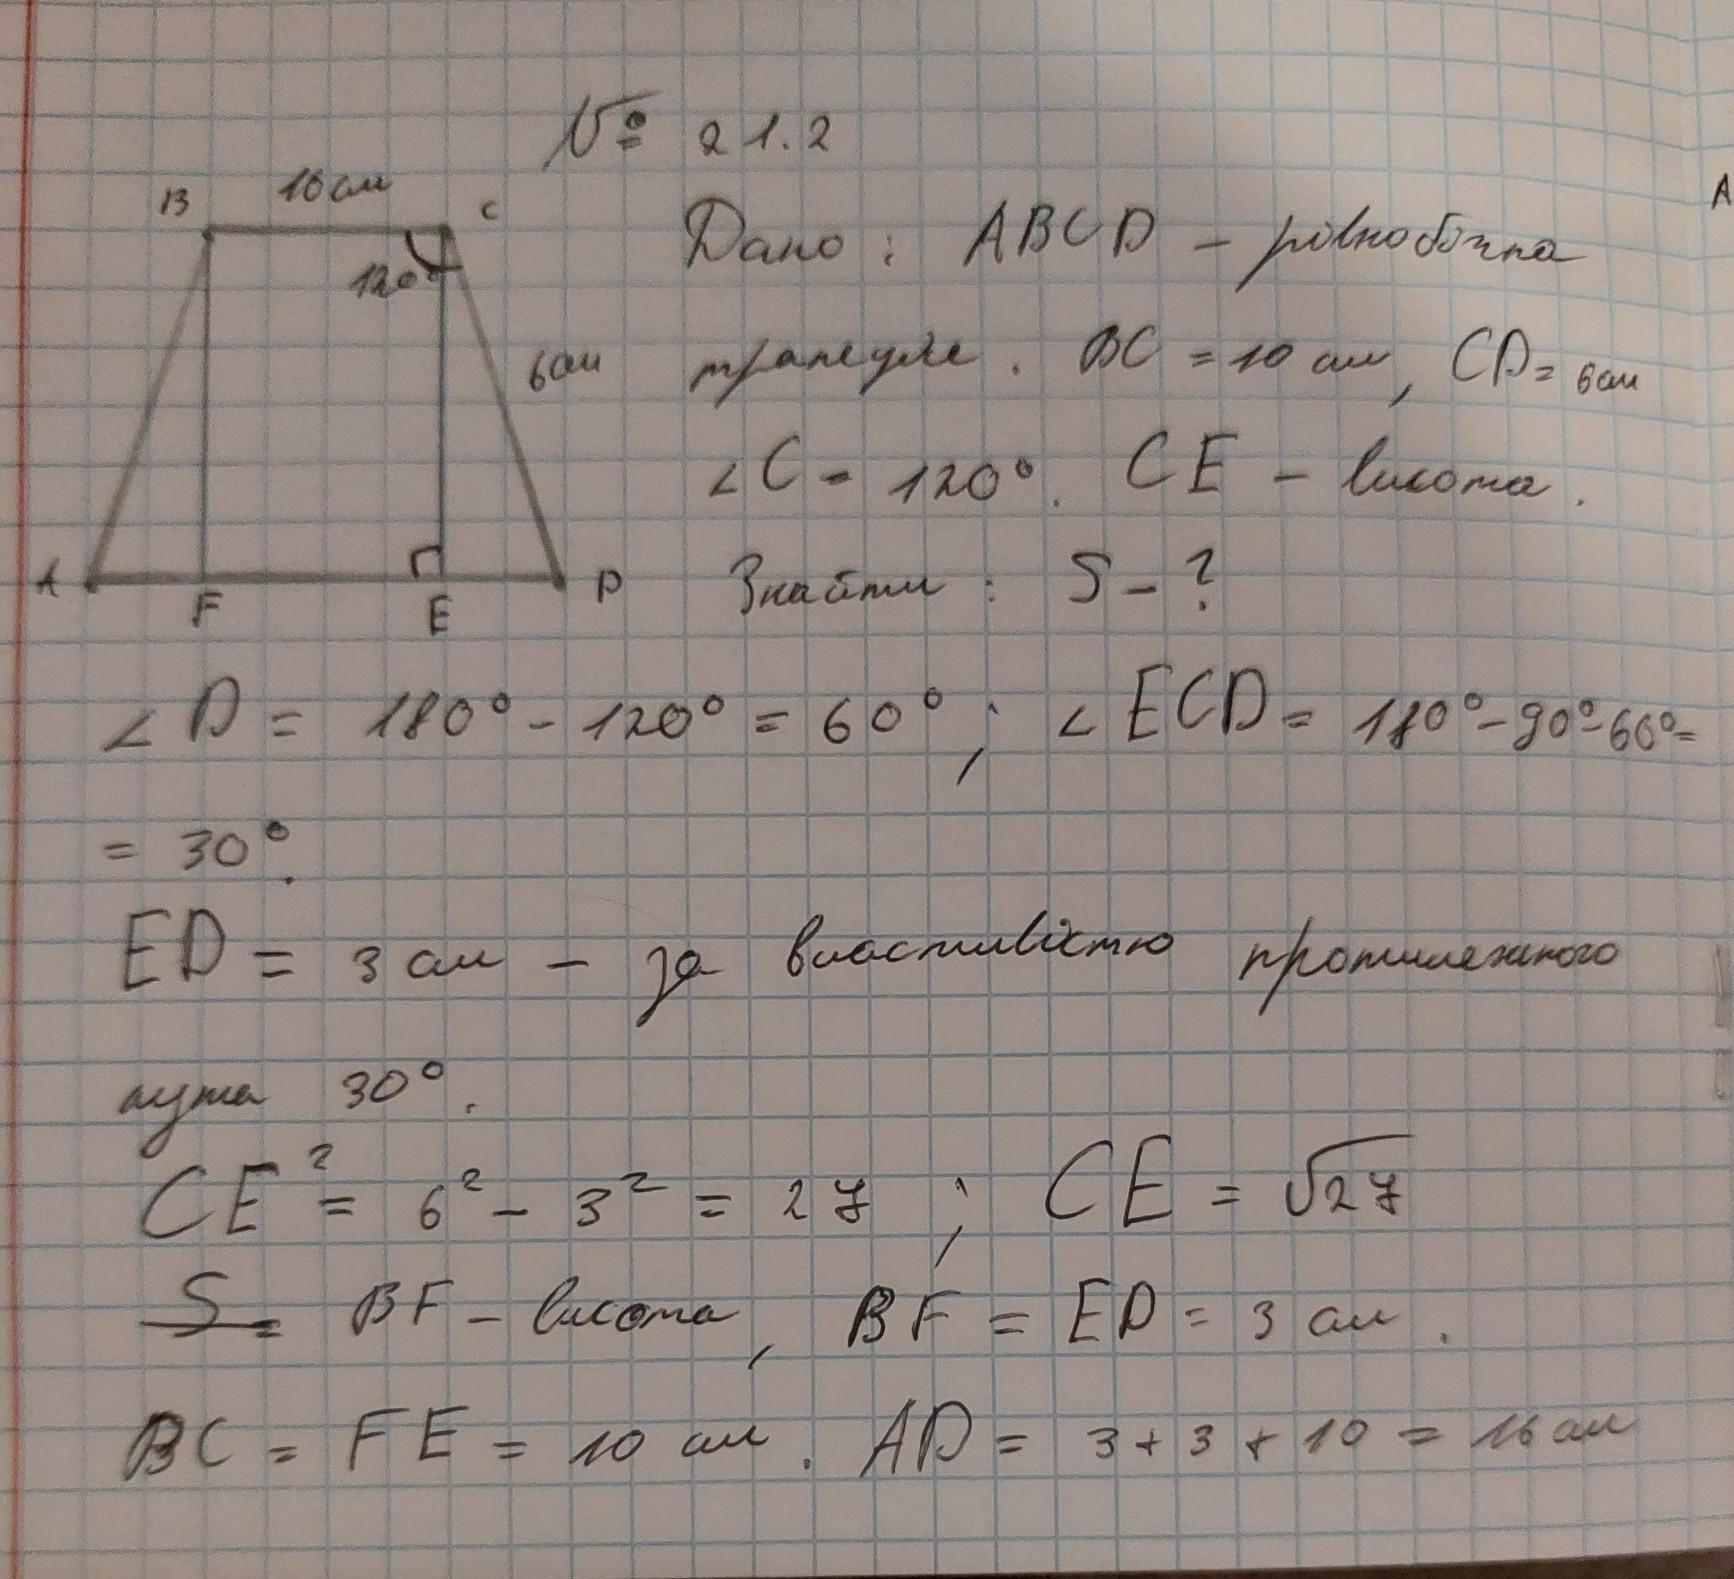 № 21.2
B 10см C
120°
6см
A F E D
Дано: ABCD – рівнобічна
трапеція. BC = 10 см, CD = 6см
∠C = 120°. CE – висота.
Знайти: S – ?
∠D = 180° – 120° = 60°; ∠ECD = 180° – 90° – 60° =
= 30°.
ED = 3 см – за властивістю протилежного
кута 30°.
CE² = 6² – 3² = 27; CE = √27
S = BF – висота, BF = ED = 3 см.
BC = FE = 10 см. AD = 3 + 3 + 10 = 16 см
A